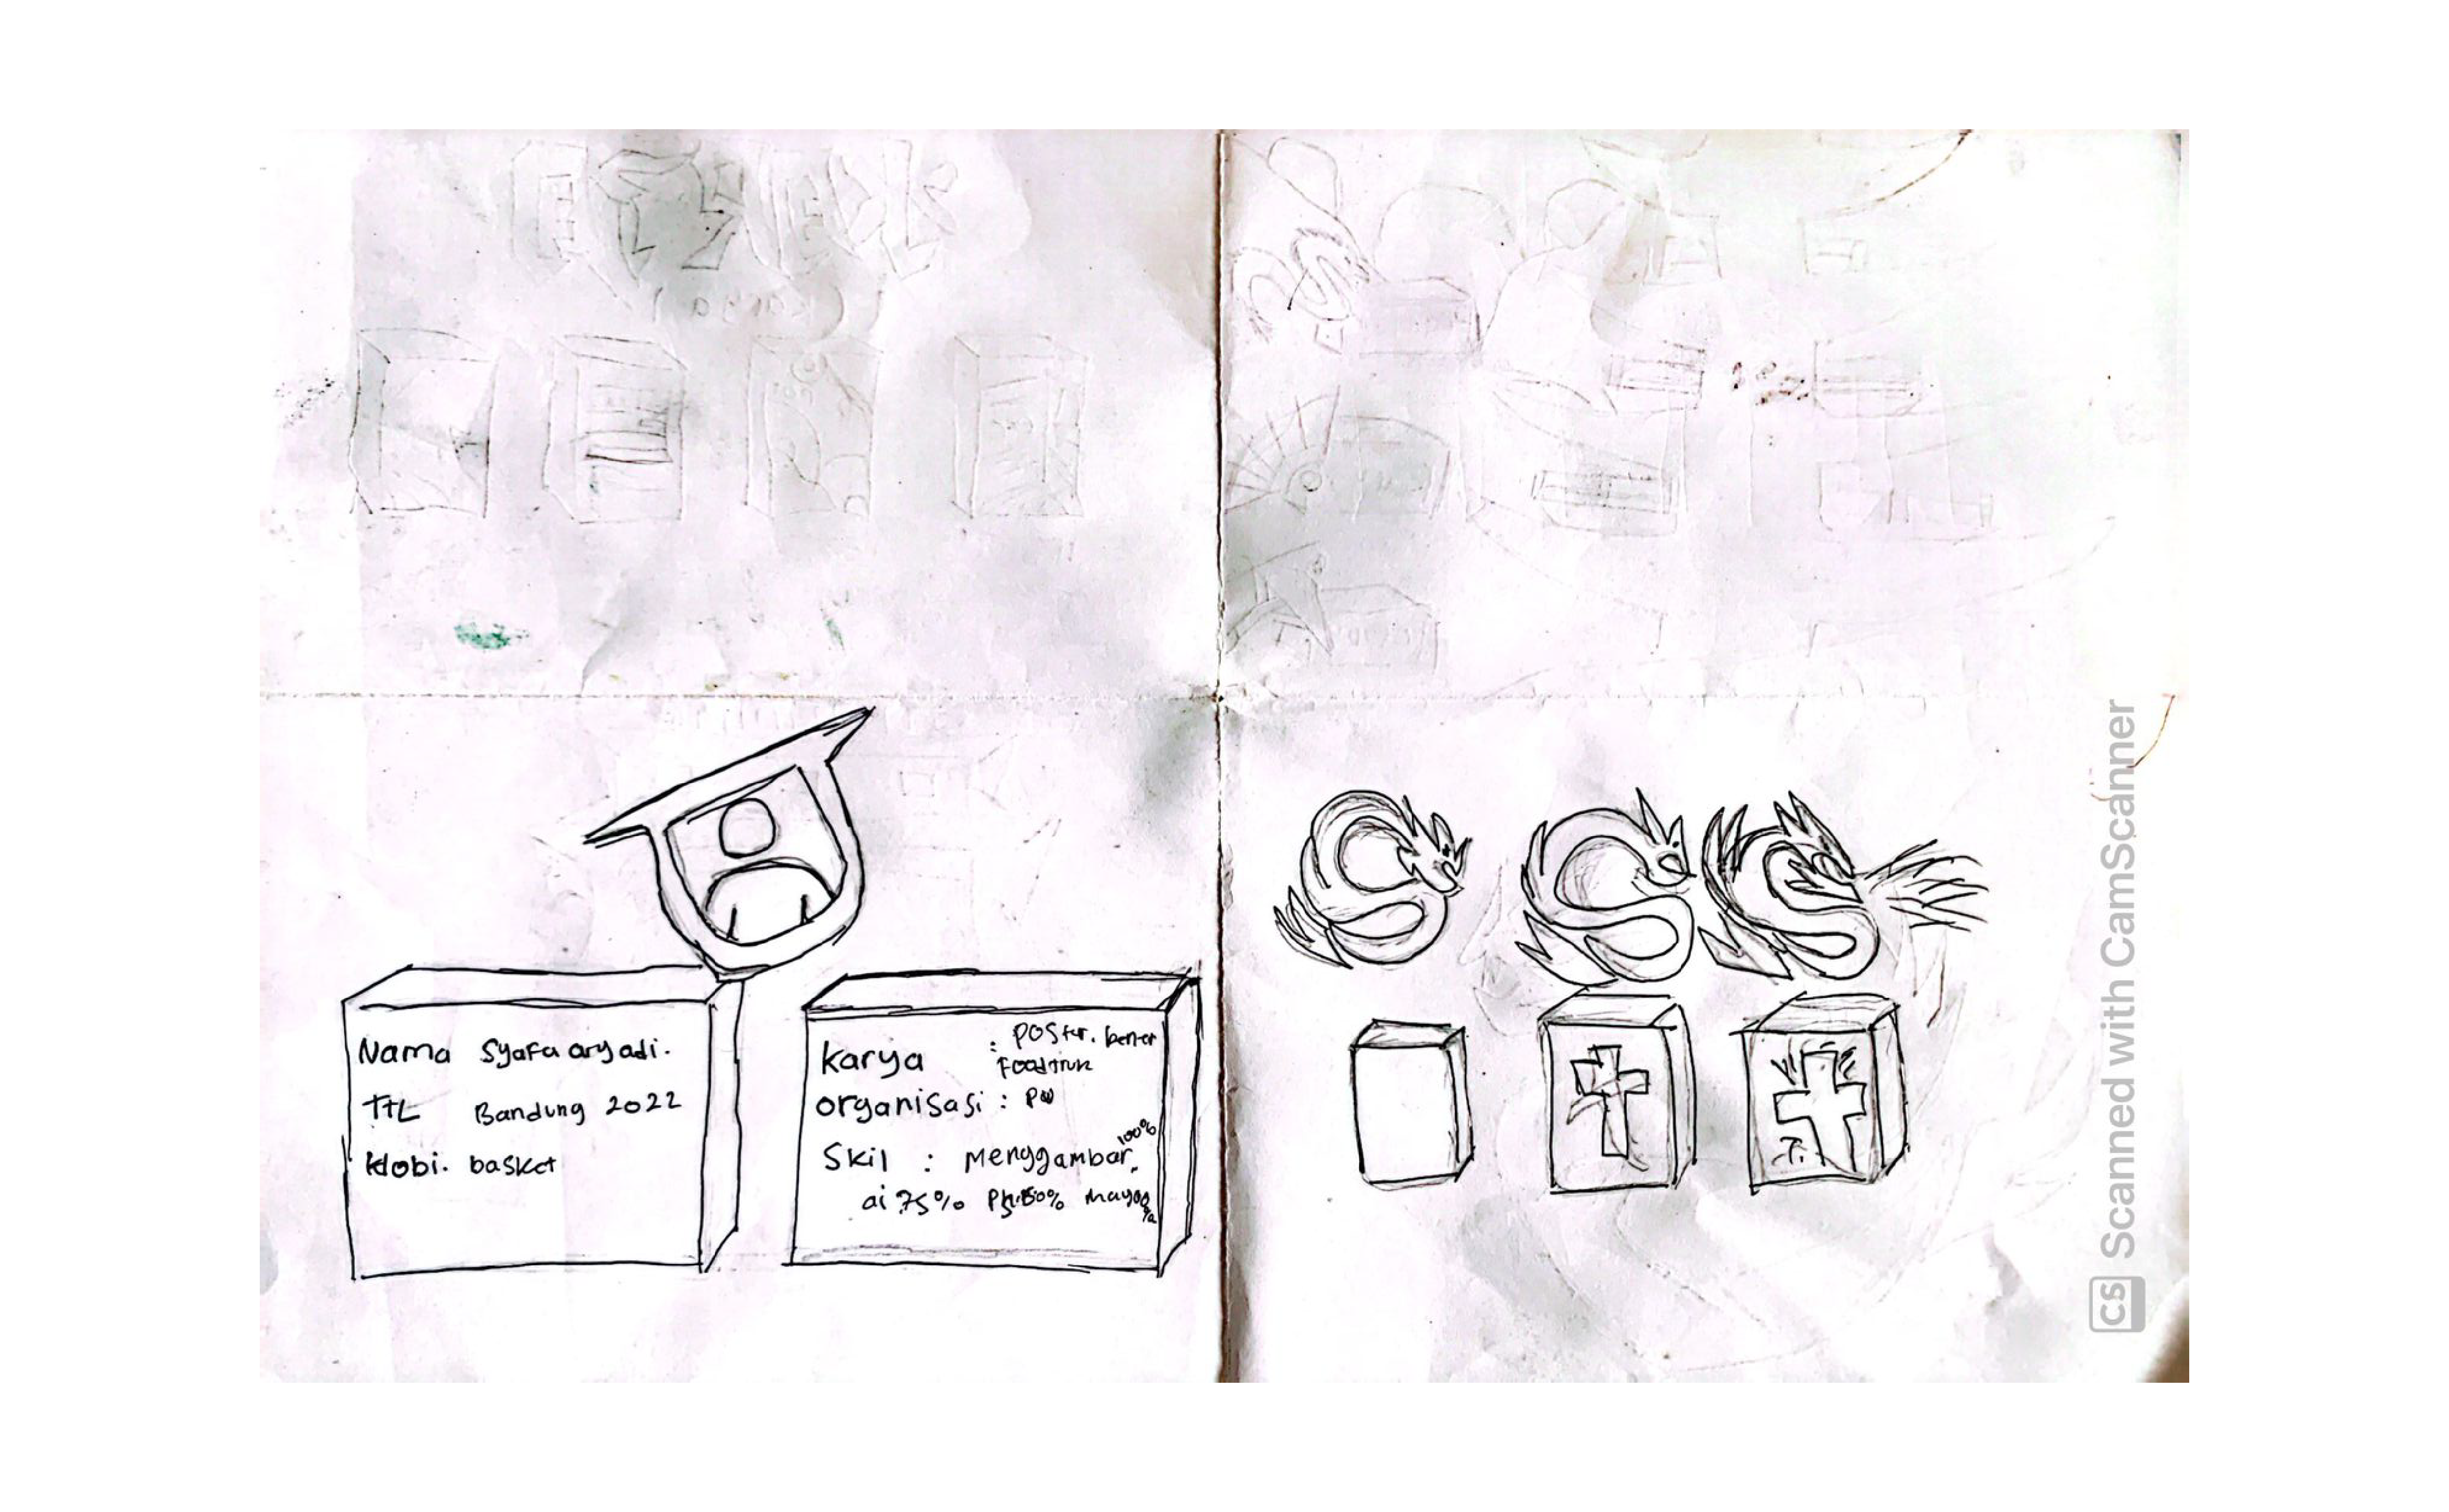 (karya)
Nama Syafa aryadi.
TTL Bandung 2022
Hobi. basket
karya : poster. bener
Foodtruk
organisasi : PW
Skil : Menggambar 100%
ai 75%
CS Scanned with CamScanner